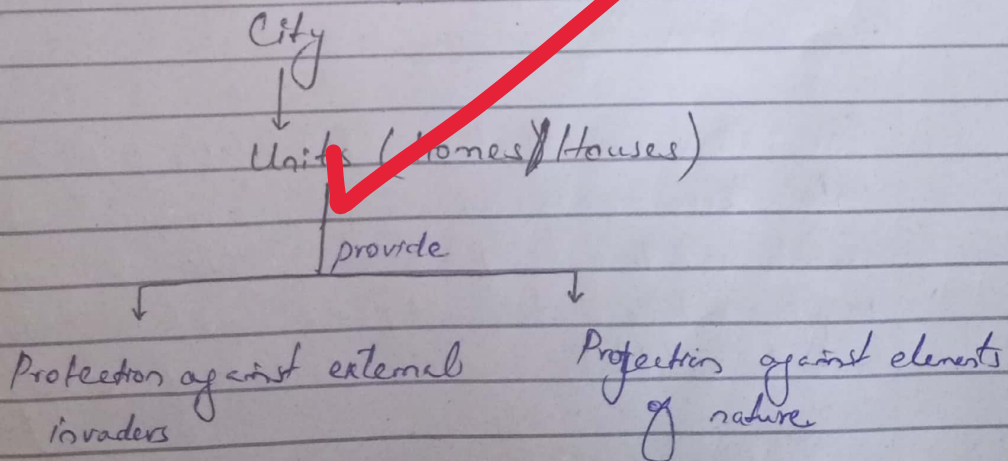 City
Units (Homes/Houses)
provide
Protection against external
invaders
Protection against elements
of nature